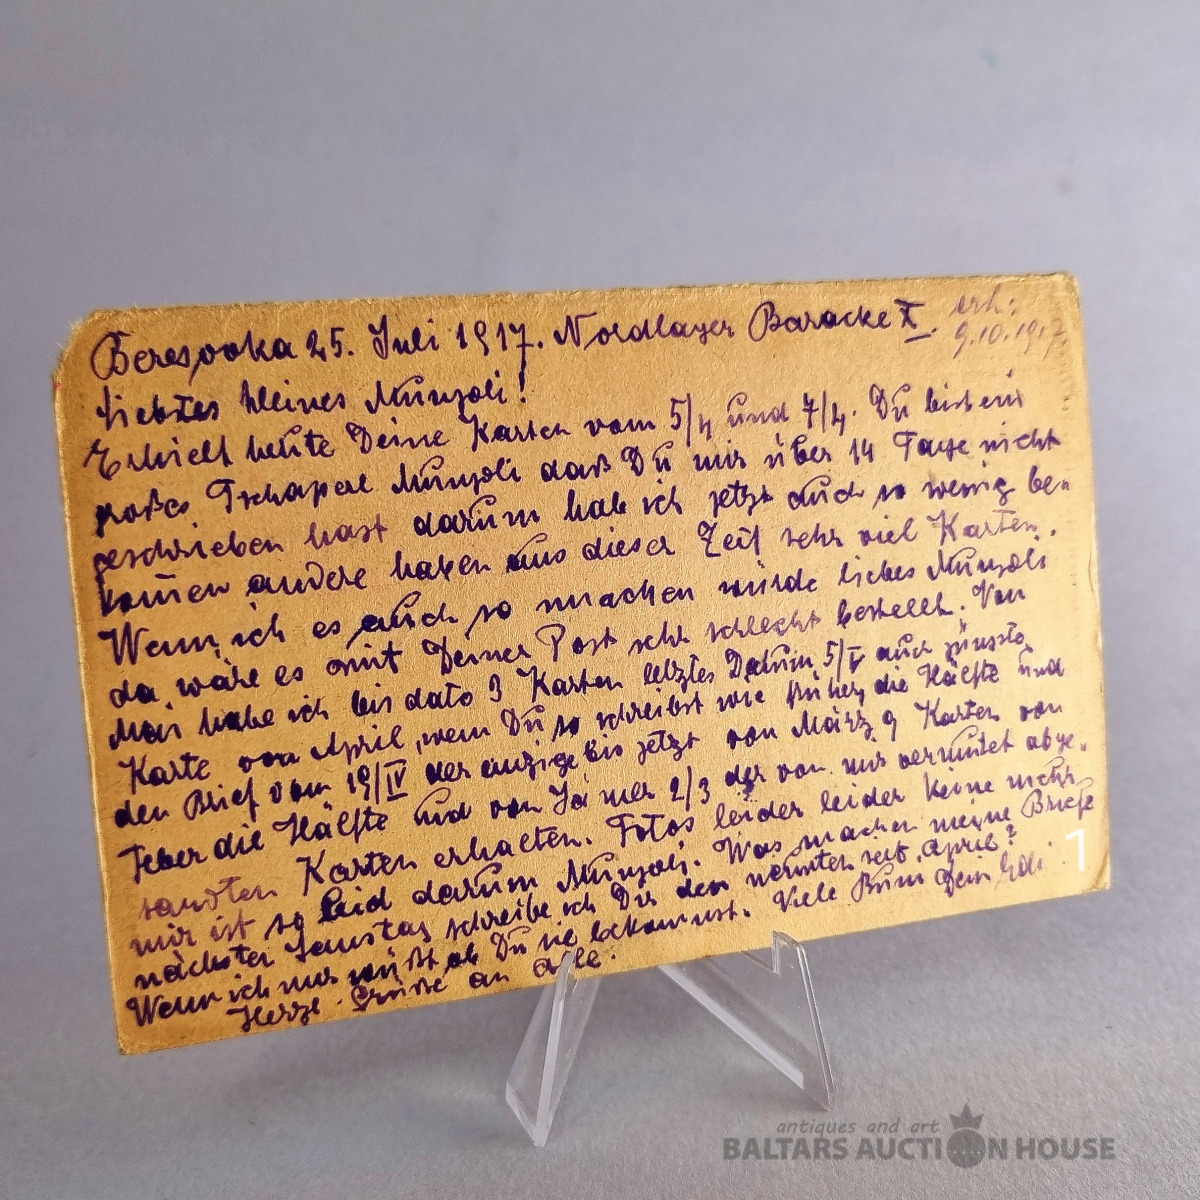 Beresovka 25. Juli 1917. Nordlager Baracke X. erh:
9.10.1917
Liebstes kleines Munzoli!
Erhielt heute Deine Karten vom 5/4 und 7/4. Du bist ein
großes Tschaperl Munzoli daß Du mir über 14 Tage nicht
geschrieben hast darum hab ich jetzt auch so wenig be-
komen andere haben aus dieser Zeit sehr viel Karten.
Wenn ich es auch so machen würde liebes Munzoli
da wäre es mit Deiner Post sehr schlecht bestellt. Von
Mai habe ich bis dato 3 Karten letztes Datum 5/V auch
Karte von April, wenn Du so schreibst wie früher, die Hälfte und
den Brief vom 19/IV der einzige bis jetzt von März 9 Karten von
Feber die Hälfte und von Jänner 2/3 der von mir vermutet abge-
sandten Karten erhalten. Fotos leider leider keine mehr
mir ist so leid darum Munzoli. Was machen meine Briefe
nächsten Samstag schreibe ich Dir den neunten seit April?
Wenn ich nur wüßt ob Du sie bekommst. Viele Bussi Dein Edi
Herzl. Grüße an Alle.
1
antiques and art
BALTARS AUCTION HOUSE